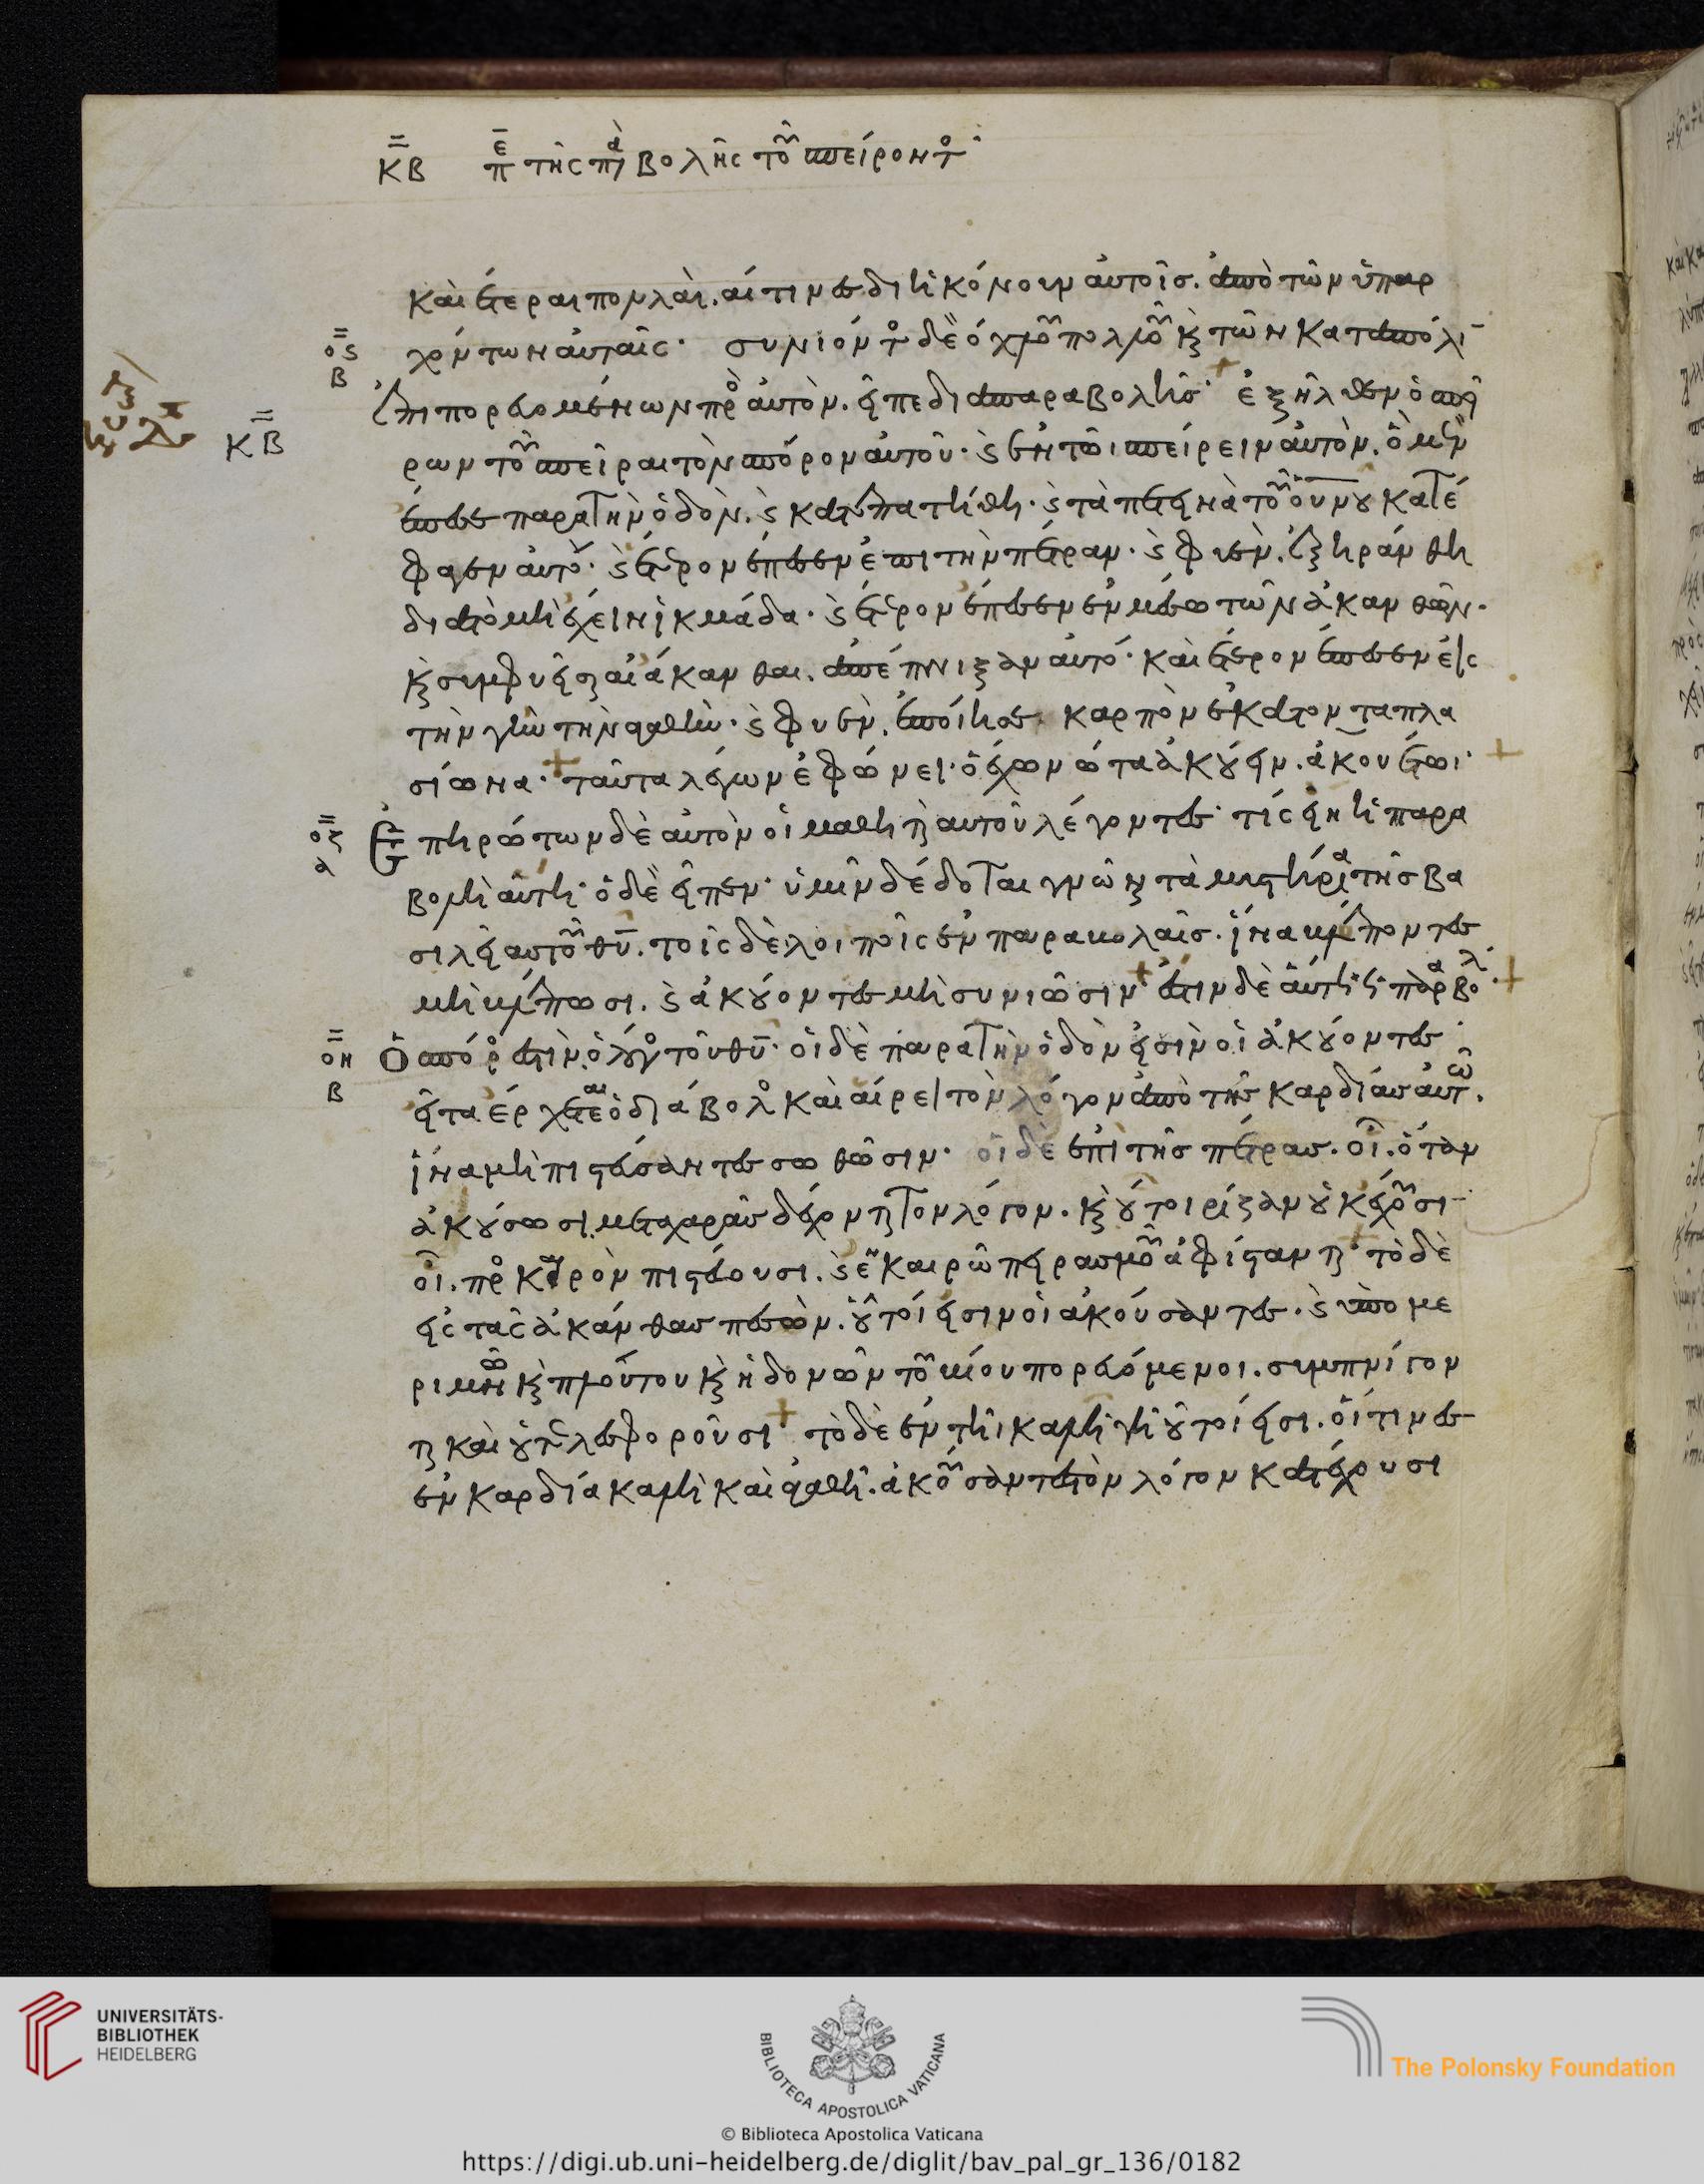 ΚΒ περὶ τῆς παραβολῆς τοῦ σπείροντος
καὶ ἕτεραι πολλαί. αἵτινες διηκόνουν αὐτοῖς. ἀπὸ τῶν ὑπαρ
οϛ χόντων αὐταῖς· συνιόντος δὲ ὄχλου πολλοῦ καὶ τῶν κατὰ πόλιν
Β ἐπιπορευομένων πρὸς αὐτὸν. εἶπε διὰ παραβολῆς· ἐξῆλθεν ὁ σπεί
ΚΒ ρων τοῦ σπεῖραι τὸν σπόρον αὐτοῦ· καὶ ἐν τῶι σπείρειν αὐτὸν. ὃ μὲν
ἔπεσε παρὰ τὴν ὁδὸν. καὶ κατεπατήθη· καὶ τὰ πετεινὰ τοῦ οὐνου κατέ
φαγεν αὐτό· καὶ ἕτερον ἔπεσεν ἐπὶ τὴν πέτραν· καὶ φυὲν. ἐξηράνθη
διὰ τὸ μὴ ἔχειν ἰκμάδα· καὶ ἕτερον ἔπεσεν ἐν μέσω τῶν ἀκανθῶν·
καὶ συμφυεῖσαι αἱ ἄκανθαι. ἀπέπνιξαν αὐτό· καὶ ἕτερον ἔπεσεν εἰς
τὴν γῆν τὴν ἀγαθὴν· καὶ φυὲν. ἐποίησε καρπὸν ἑκατονταπλα
σίωνα· ταῦτα λέγων ἐφώνει· ὁ ἔχων ὦτα ἀκούειν. ἀκουέτω·
οζ Ἐπηρώτων δὲ αὐτὸν οἱ μαθηταὶ αὐτοῦ λέγοντες· τίς εἴη ἡ παρα
α βολὴ αὕτη· ὁ δὲ εἶπεν· ὑμῖν δέδοται γνῶναι τὰ μυστήρια τῆς βα
σιλείας τοῦ θυ. τοῖς δὲ λοιποῖς ἐν παραβολαῖς. ἵνα βλέποντες
μὴ βλέπωσι. καὶ ἀκούοντες μὴ συνιῶσιν· ἔστιν δὲ αὕτη ἡ παραβολή·
οη Ὁ σπόρος ἐστὶν. ὁ λόγος τοῦ θυ· οἱ δὲ παρὰ τὴν ὁδὸν εἰσὶν οἱ ἀκούοντες·
Β εἶτα ἔρχεται ὁ διάβολος καὶ αἴρει τὸν λόγον ἀπὸ τῆς καρδίας αὐτῶν.
ἵνα μὴ πιστεύσαντες σωθῶσιν· οἱ δὲ ἐπὶ τῆς πέτρας. οἳ. ὅταν
ἀκούσωσι. μετὰ χαρᾶς δέχονται τὸν λόγον. καὶ οὗτοι ρίζαν οὐκ ἔχουσι·
οἳ. πρὸς καιρὸν πιστεύουσι. καὶ ἐν καιρῶ πειρασμοῦ ἀφίστανται· τὸ δὲ
εἰς τὰς ἀκάνθας πεσὸν. οὗτοί εἰσιν οἱ ἀκούσαντες. καὶ ὑπὸ με
ριμνῶν καὶ πλούτου καὶ ἡδονῶν τοῦ βίου πορευόμενοι. συμπνίγον
ται καὶ οὐ τελεσφοροῦσι· τὸ δὲ ἐν τῆι καλῆ γῆ οὗτοί εἰσι. οἵτινες
ἐν καρδία καλῆ καὶ ἀγαθῆ. ἀκούσαντες τὸν λόγον κατέχουσι
UNIVERSITÄTS-
BIBLIOTHEK
HEIDELBERG
BIBLIOTECA APOSTOLICA VATICANA
The Polonsky Foundation
© Biblioteca Apostolica Vaticana
https://digi.ub.uni-heidelberg.de/diglit/bav_pal_gr_136/0182